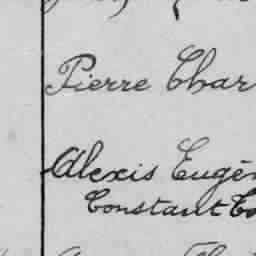 Pierre Char
Alexis Eugèn
Constant Co